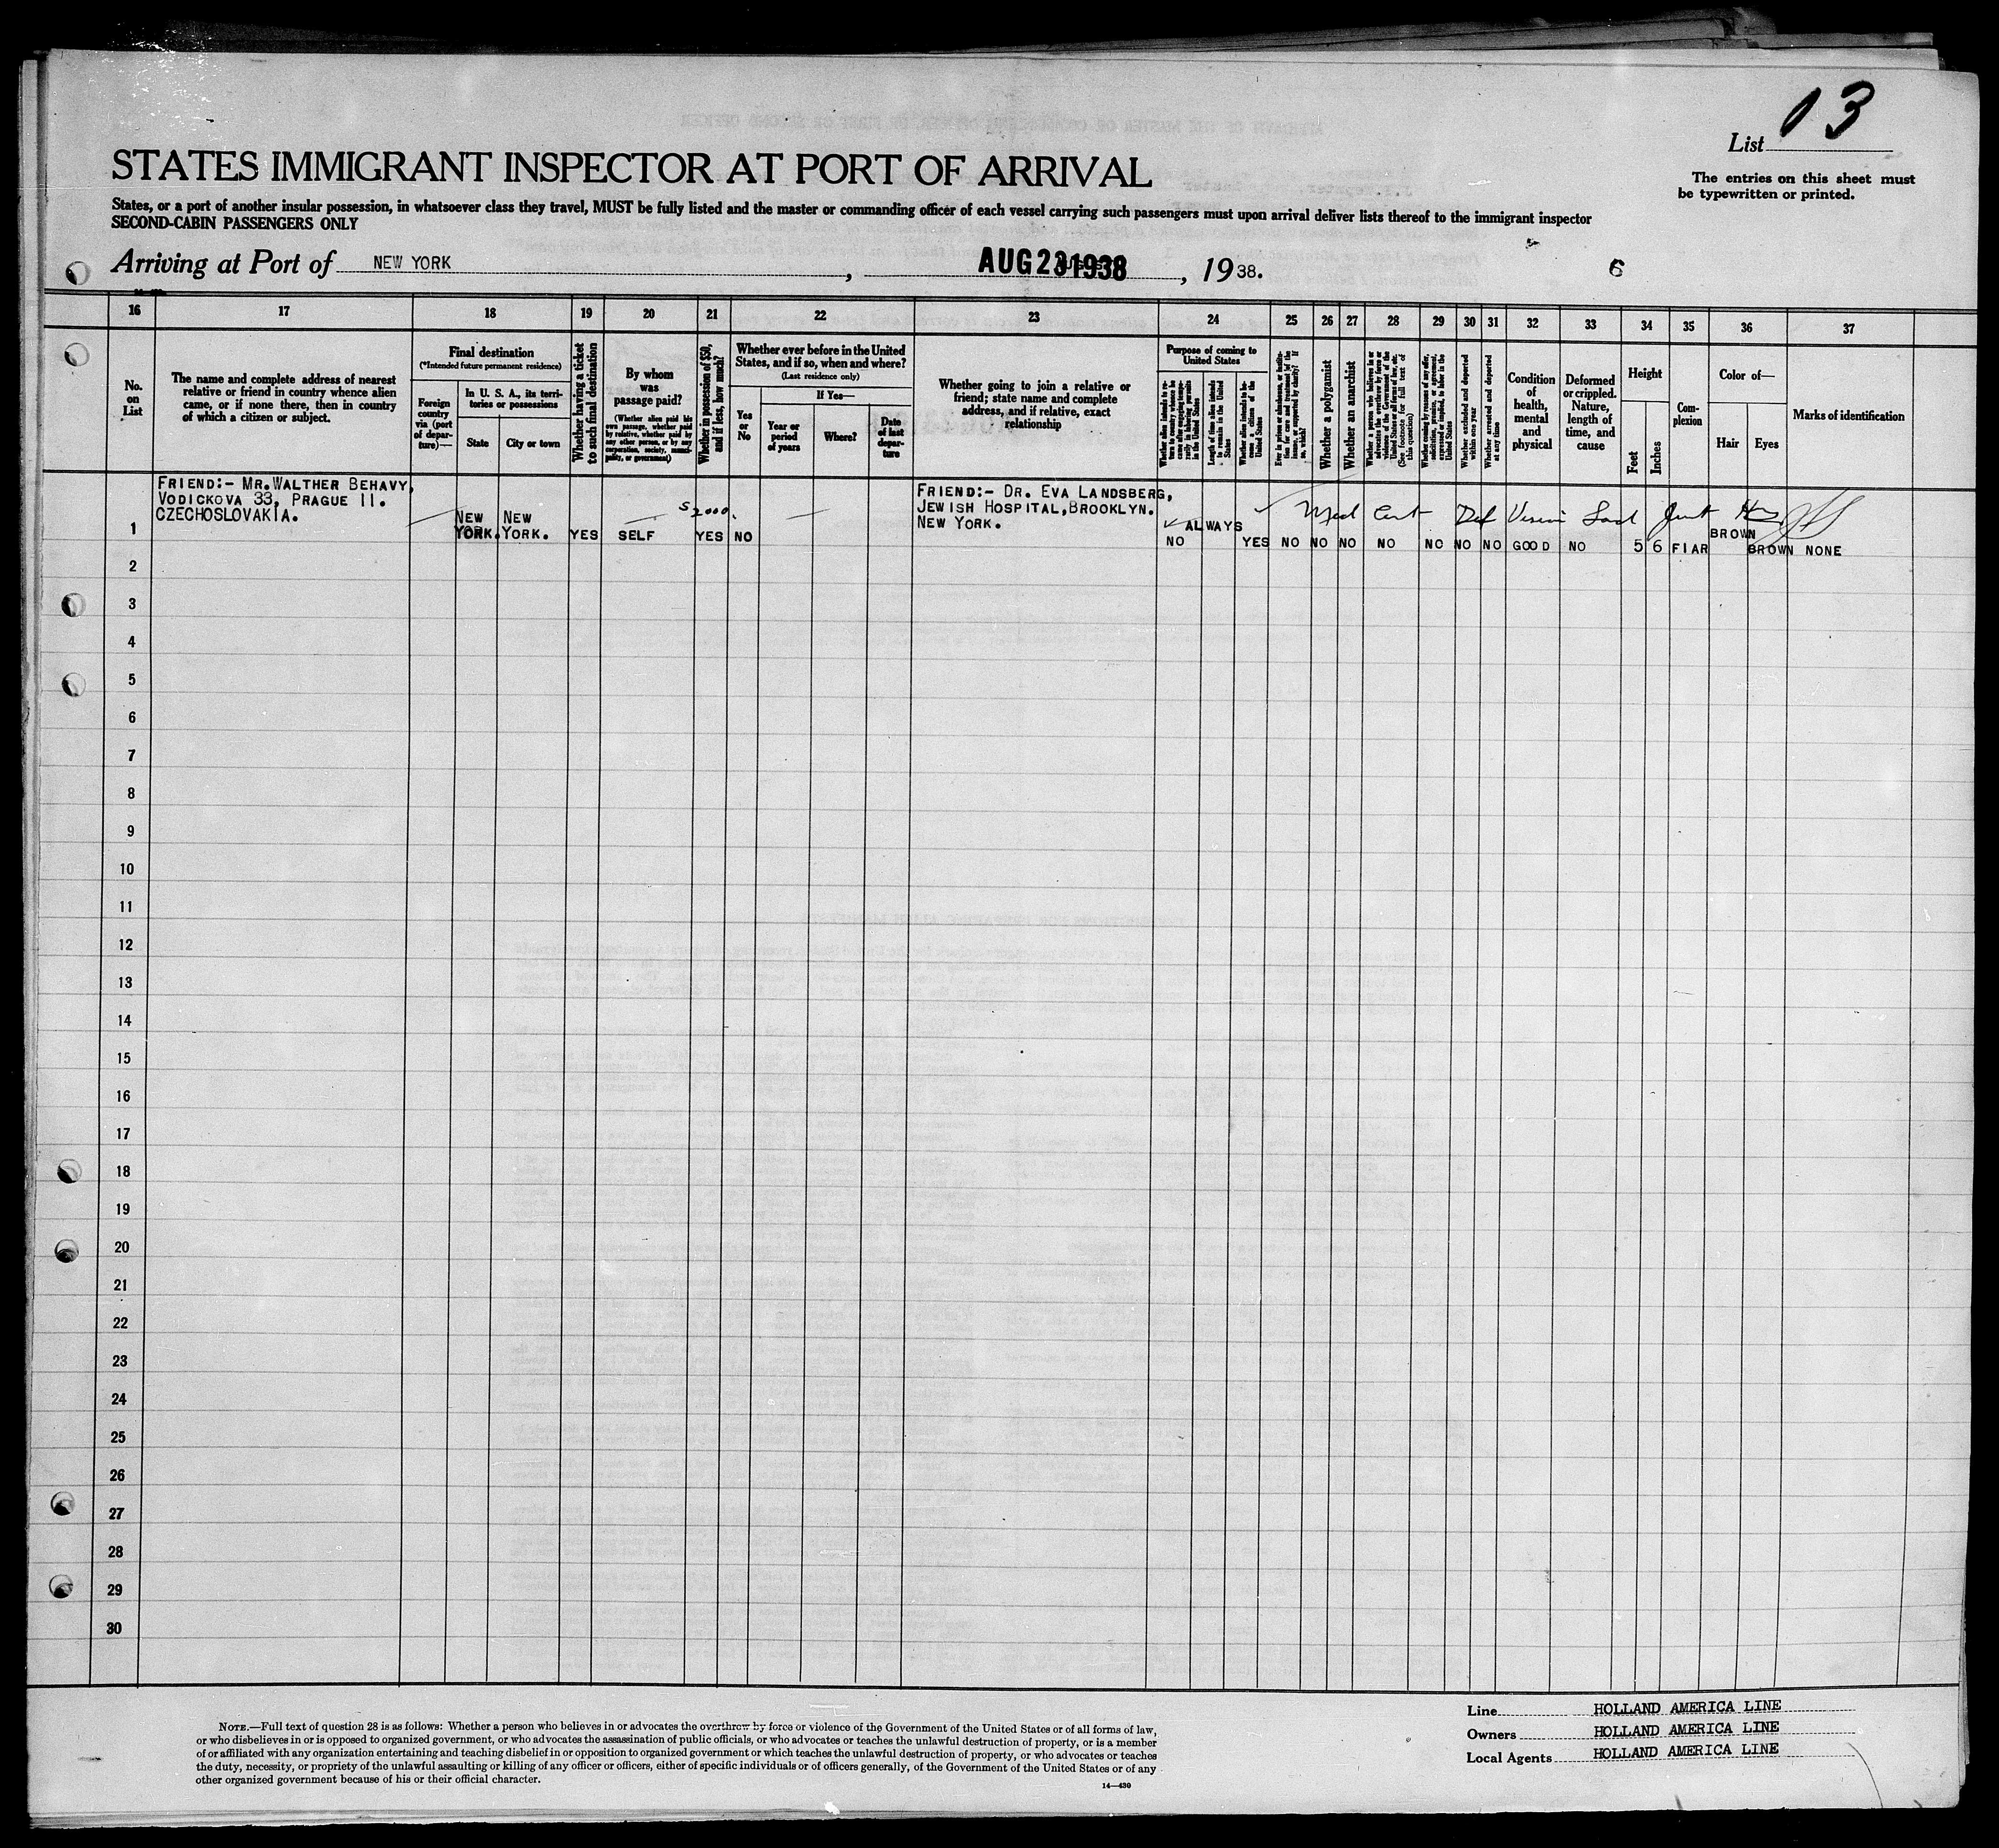 List 13
STATES IMMIGRANT INSPECTOR AT PORT OF ARRIVAL
The entries on this sheet must
be typewritten or printed.
States, or a port of another insular possession, in whatsoever class they travel, MUST be fully listed and the master or commanding officer of each vessel carrying such passengers must upon arrival deliver lists thereof to the immigrant inspector
SECOND-CABIN PASSENGERS ONLY
Arriving at Port of NEW YORK, AUG 23 1938, 1938.
6
16 17 18 19 20 21 22 23 24 25 26 27 28 29 30 31 32 33 34 35 36 37
No.
on
List
The name and complete address of nearest
relative or friend in country whence alien
came, or if none there, then in country
of which a citizen or subject.
Final destination
(*Intended future permanent residence)
Foreign
country
via (port
of depar-
ture)—
In U. S. A., its terri-
tories or possessions
State
City or town
Whether having a ticket
to such final destination
By whom
was
passage paid?
(Whether alien paid his
own passage, whether paid
by relative, whether paid by
any other person, or by any
corporation, society, munici-
pality, or government)
Whether in possession of $50,
and if less, how much?
Whether ever before in the United
States, and if so, when and where?
(Last residence only)
Yes
or
No
If Yes—
Year or
period
of years
Where?
Date
of last
depar-
ture
Whether going to join a relative or
friend; state name and complete
address, and if relative, exact
relationship
Purpose of coming to
United States
Length of time alien intends
to remain in the United
States
Whether alien intends to be-
come a citizen of the
United States
Whether a polygamist
Whether an anarchist
Whether excluded and deported
within one year
Whether arrested and deported
at any time
Condition
of
health,
mental
and
physical
Deformed
or crippled.
Nature,
length of
time, and
cause
Height
Feet
Inches
Com-
plexion
Color of—
Hair
Eyes
Marks of identification
1
FRIEND:- MR.WALTHER BEHAVY,
VODICKOVA 33, PRAGUE II.
CZECHOSLOVAKIA.
NEW
YORK.
NEW
YORK.
YES
SELF
$2000.
YES
NO
FRIEND:- DR. EVA LANDSBERG,
JEWISH HOSPITAL,BROOKLYN.
NEW YORK.
ALWAYS
Med Cert. Def Vision
NO YES NO NO NO NO NO NO NO GOOD NO 5 6 FIAR BROWN BROWN NONE
2
3
4
5
6
7
8
9
10
11
12
13
14
15
16
17
18
19
20
21
22
23
24
25
26
27
28
29
30
NOTE.—Full text of question 28 is as follows: Whether a person who believes in or advocates the overthrow by force or violence of the Government of the United States or of all forms of law,
or who disbelieves in or is opposed to organized government, or who advocates the assassination of public officials, or who advocates or teaches the unlawful destruction of property, or is a member
of or affiliated with any organization entertaining and teaching disbelief in or opposition to organized government or which teaches the unlawful destruction of property, or who advocates or teaches
the duty, necessity, or propriety of the unlawful assaulting or killing of any officer or officers, either of specific individuals or of officers generally, of the Government of the United States or of any
other organized government because of his or their official character.
14—430
Line HOLLAND AMERICA LINE
Owners HOLLAND AMERICA LINE
Local Agents HOLLAND AMERICA LINE